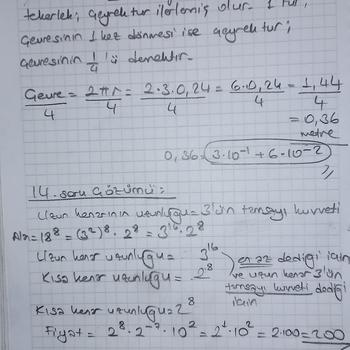 tekerlek; çeyrek tur ilerlemiş olur. 1 tur,
çevresinin 1 kez dönmesi ise çeyrek tur;
çevresinin 1/4 'ü demektir.
Çevre/4 = 2πr/4 = 2·3·0,24/4 = 6·0,24/4 = 1,44/4
= 0,36
metre
0,36 = 3·10⁻¹ + 6·10⁻²
14. soru Çözümü:
Uzun kenarının uzunluğu = 3'ün tamsayı kuvveti
Aln = 18⁸ = (3²)⁸ · 2⁸ = 3¹⁶ · 2⁸
Uzun kenar uzunluğu = 3¹⁶
Kısa kenar uzunluğu = 2⁸
en az dediği için
ve uzun kenar 3'ün
tamsayı kuvveti dediği
için
Kısa kenar uzunluğu = 2⁸
Fiyat = 2⁸ · 2⁻⁷ · 10² = 2¹ · 10² = 2·100 = 200